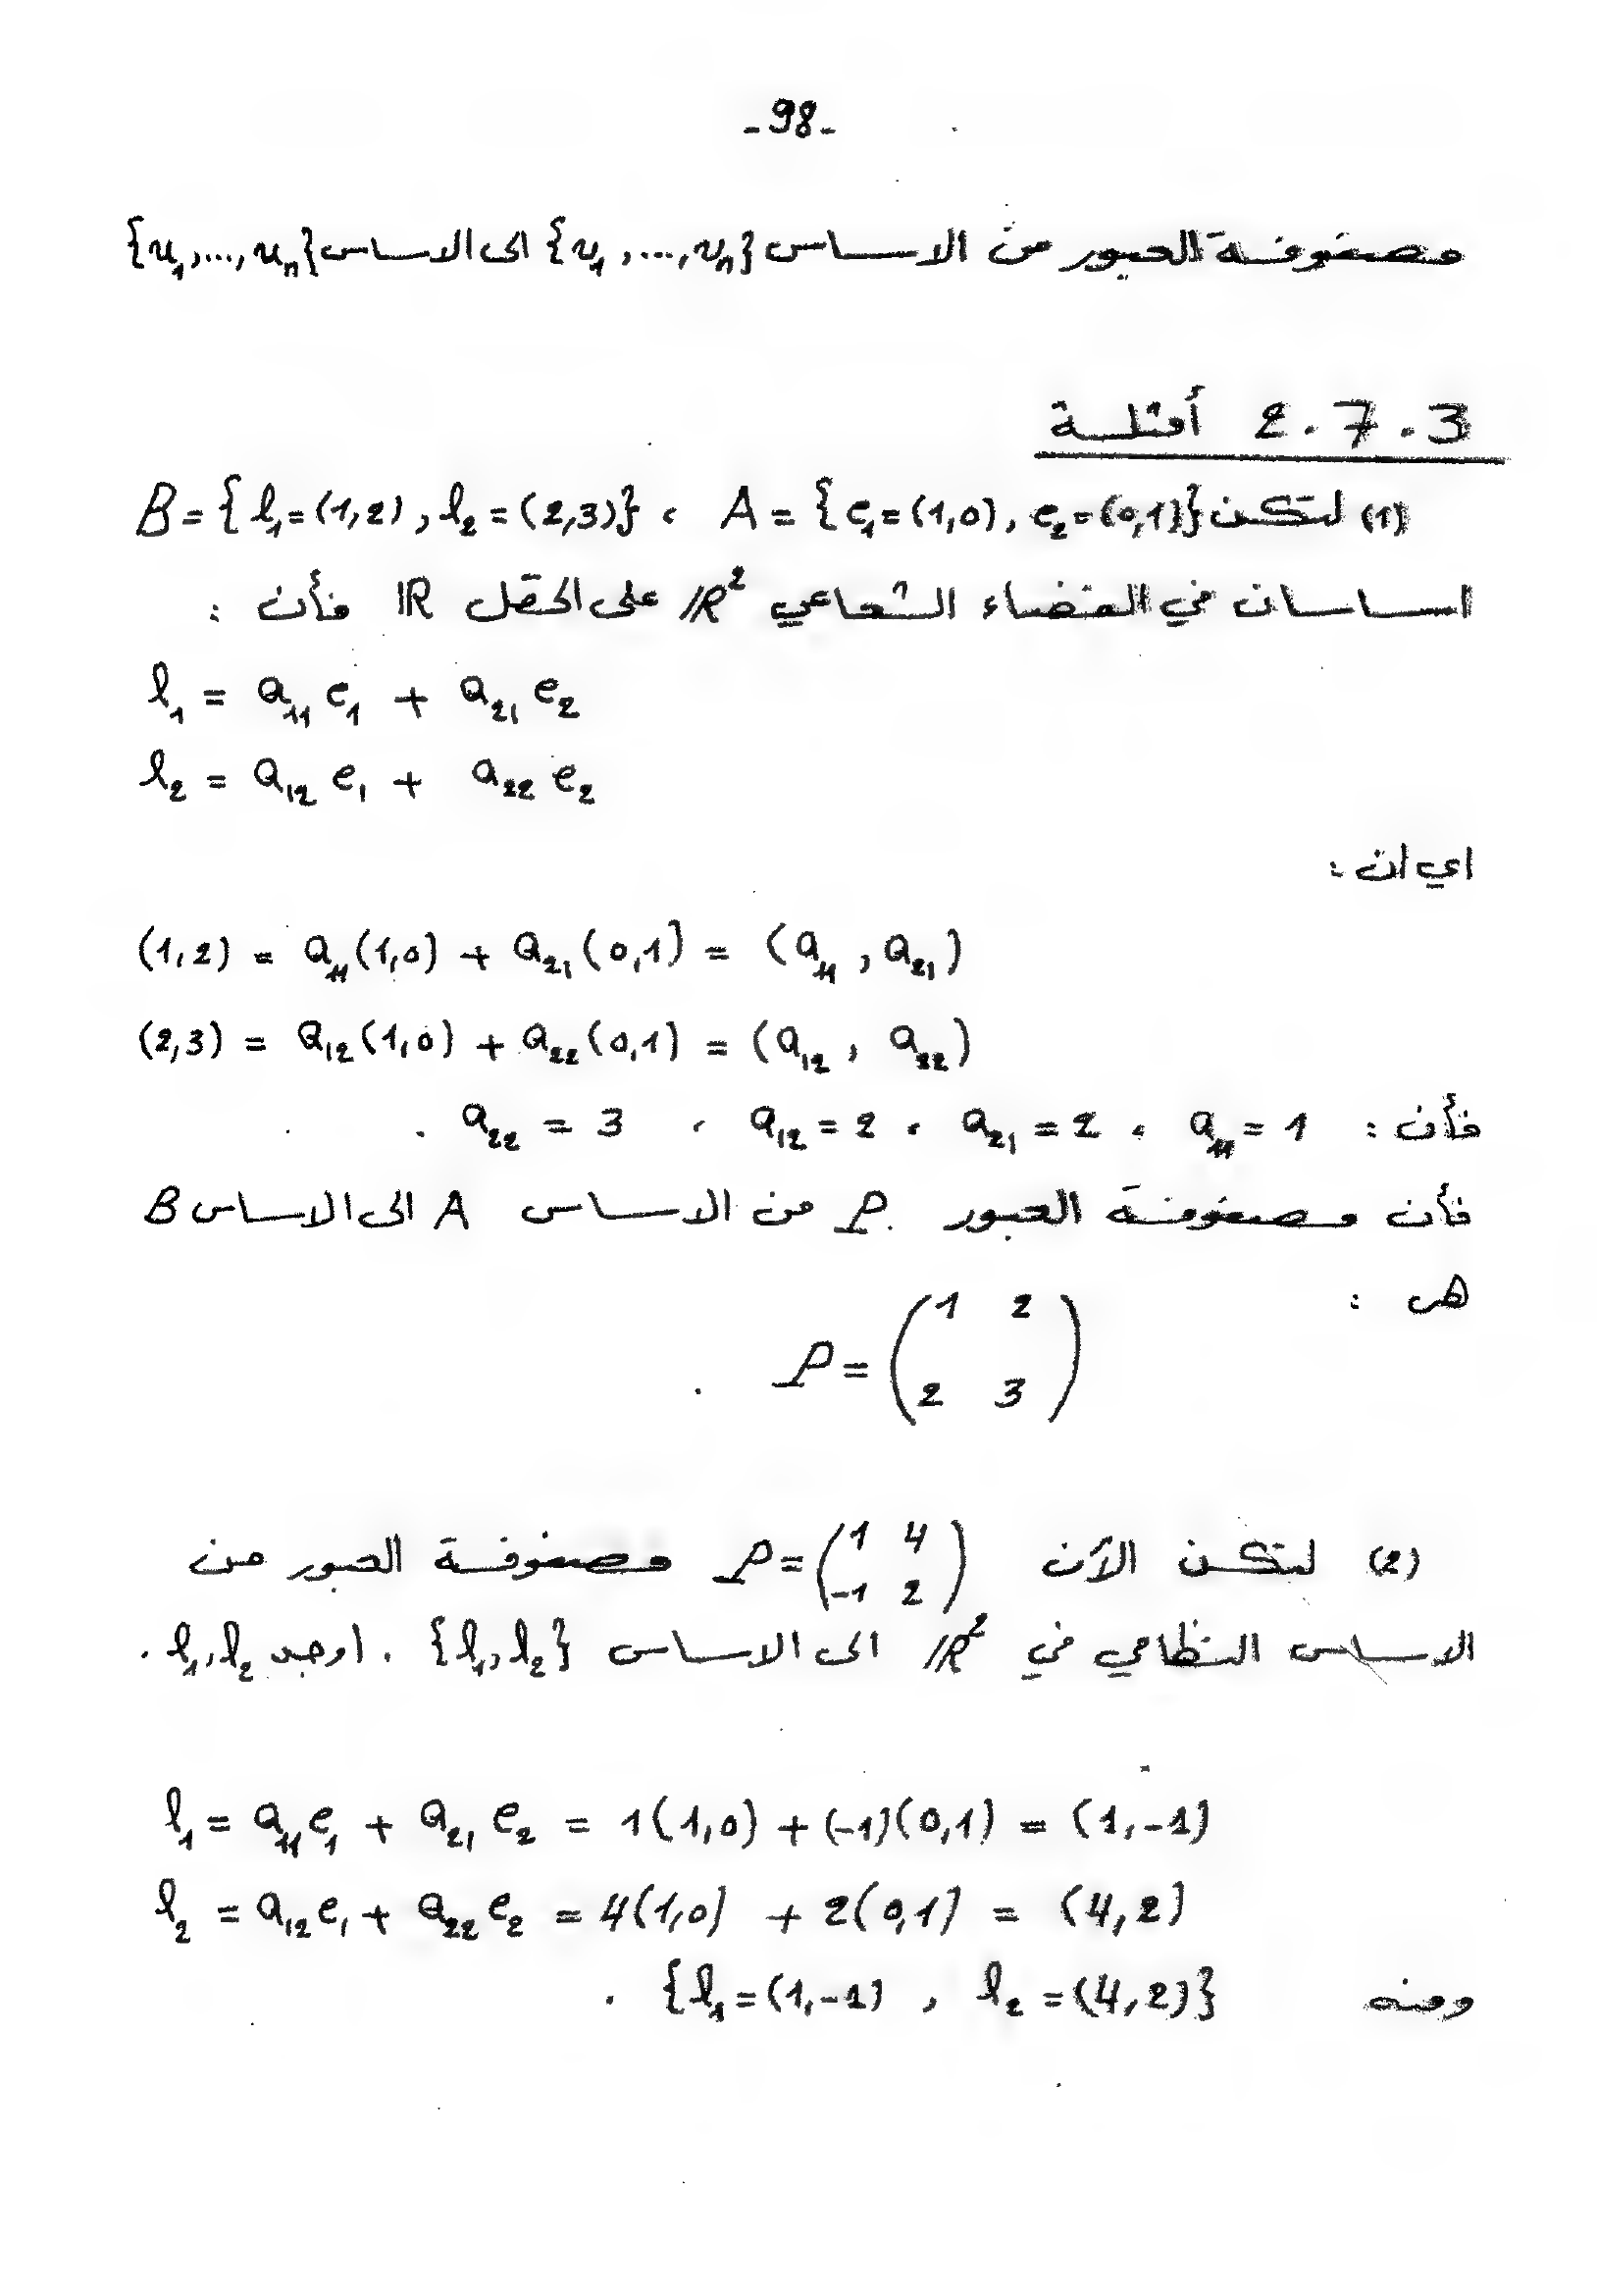 -98-
مصفوفة العبور من الاساس {v₁,...,vₙ} الى الاساس {u₁,...,uₙ}
2.7.3 أمثلة
(1) لتكن A = {e₁=(1,0), e₂=(0,1)} ، B = {l₁=(1,2), l₂=(2,3)}
اساسان في الفضاء الشعاعي ℝ² على الحقل ℝ فأن :
l₁ = a₁₁ e₁ + a₂₁ e₂
l₂ = a₁₂ e₁ + a₂₂ e₂
اي ان :
(1,2) = a₁₁(1,0) + a₂₁(0,1) = (a₁₁, a₂₁)
(2,3) = a₁₂(1,0) + a₂₂(0,1) = (a₁₂, a₂₂)
فأن : a₁₁ = 1 ، a₂₁ = 2 ، a₁₂ = 2 ، a₂₂ = 3 .
فأن مصفوفة العبور P من الاساس A الى الاساس B
هي :
P = (1 2
2 3) .
(2) لتكن الآن P = (1 4
-1 2) مصفوفة العبور من
الاساس النظامي في ℝ² الى الاساس {l₁, l₂} . اوجد l₁, l₂ .
l₁ = a₁₁ e₁ + a₂₁ e₂ = 1(1,0) + (-1)(0,1) = (1,-1)
l₂ = a₁₂ e₁ + a₂₂ e₂ = 4(1,0) + 2(0,1) = (4,2)
ومنه {l₁=(1,-1) , l₂=(4,2)} .